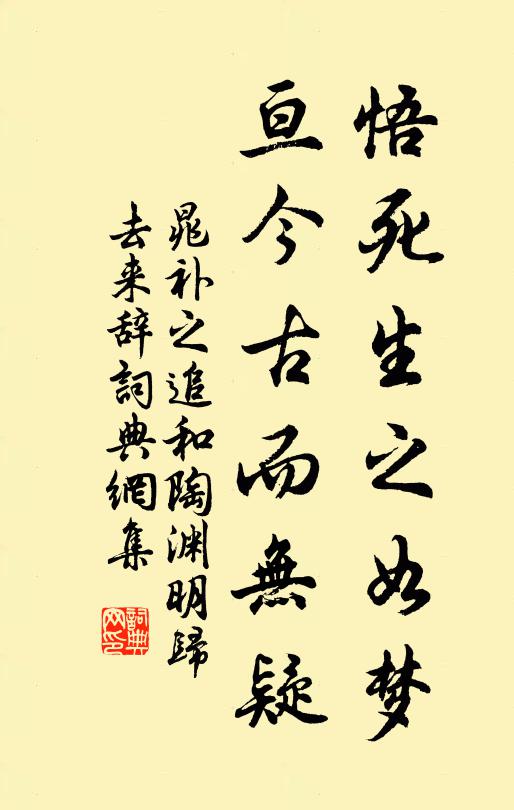 悟死生之如梦
亘今古而無疑
晁补之追和陶渊明歸
去来辞詞典網集
詞典
网印